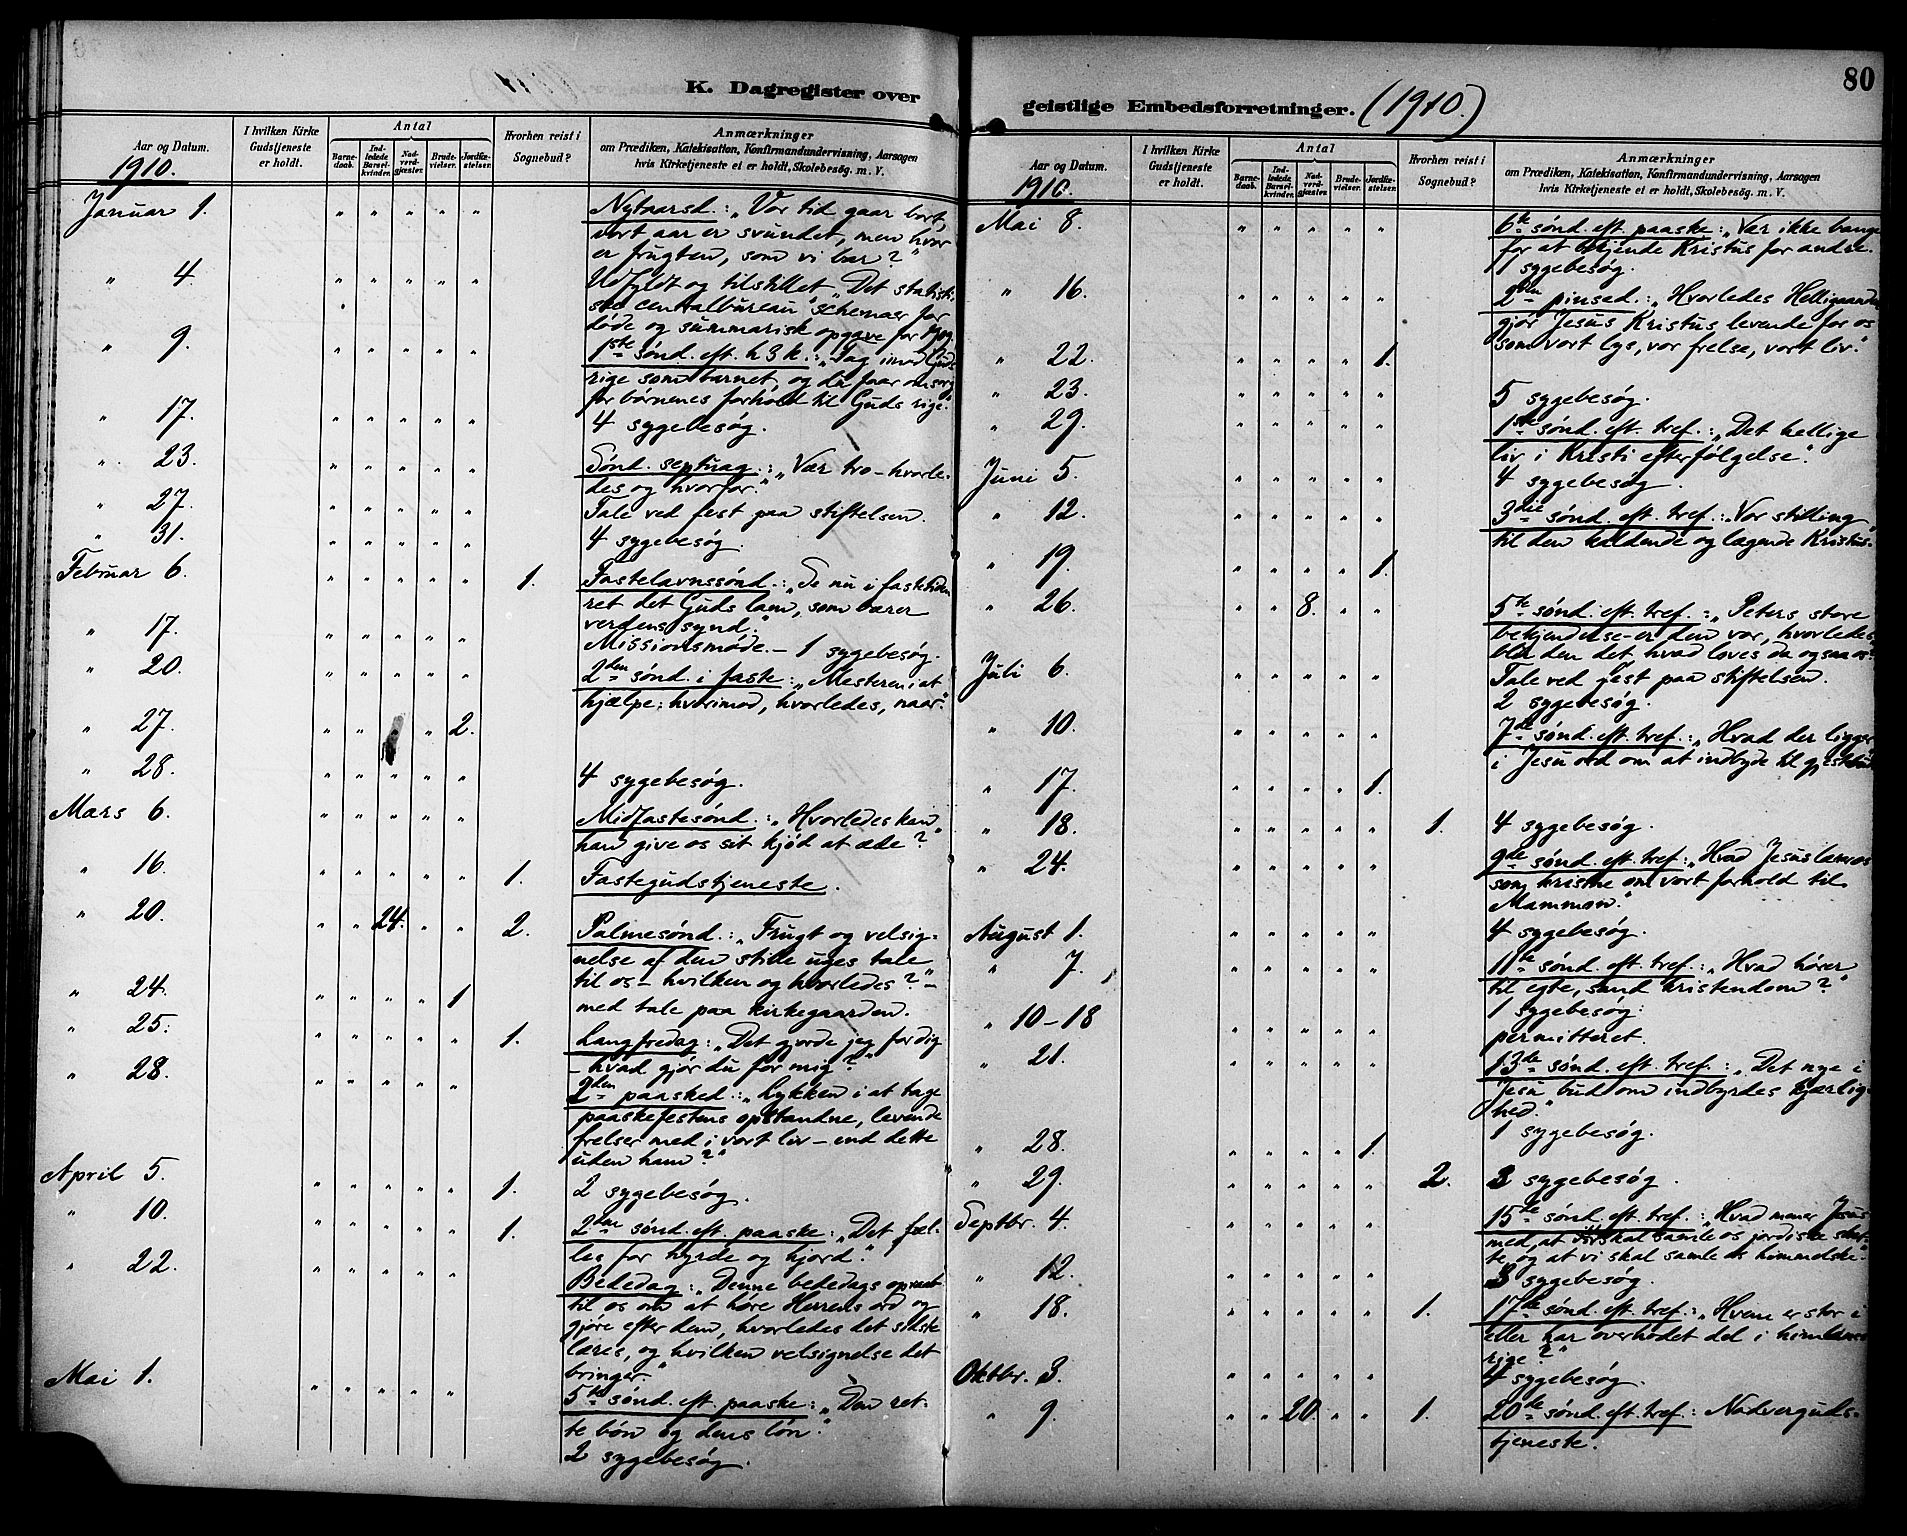 K. Dagregister over
Aar og Datum.
1910.
I hvilken Kirke
Gudstjeneste
er holdt.
Antal
Barne-
daab.
Ind-
ledede
Barsel-
kvinder.
Nad-
verd-
gjæster.
Brude-
vielser.
Jordfæ-
stelser.
Hvorhen reist i
Sognebud?
Anmærkninger
om Prædiken, Katekisation, Konfirmandundervisning, Aarsagen
hvis Kirketjeneste ei er holdt, Skolebesøg. m. V.
Januar 1. " " " " " Nytaarsd.: „Vor tid gaar bort,
vort aar er svundet, men hvor
er frugten, som vi bar?"
" 4. " " " " " Udfyldt og tilstillet „Det statisti-
ske centralbureau" schemaer for
døde og summarisk opgave for 1909.
" 9. " " " " " 1ste sønd. eft. h 3 k.: „Tag imod Guds
rige som barnet, og du faar omsorg
for børnenes forhold til Guds rige."
" 17. " " " " " 4 sygebesøg.
" 23. " " " " " Sønd. septuag.: „Vær tro – hvorle-
des og hvorfor."
" 27. " " " " " Tale ved fest paa stiftelsen.
" 31. " " " " " 4 sygebesøg.
Februar 6. " " " " " 1. Fastelavnssønd.: „Se nu i fastetiden
ret det Guds lam, som bærer
verdens synd."
" 17. " " " " " Missionsmøde. – 1 sygebesøg.
" 20. " " " " " 2den sønd. i faste: „Mesteren i at
hjælpe: hvorimod, hvorledes, naar."
" 27. " " " 2.
" 28. " " " " " 4 sygebesøg.
Mars 6. " " " " " Midfastesønd.: „Hvorledes kan
han give os sit kjød at æde?"
" 16. " " " " " 1. Fastegudstjeneste.
" 20. " " 24. " " 2. Palmesønd.: „Frugt og velsig-
nelse af den stille uges tale
til os – hvilken og hvorledes?" –
med tale paa kirkegaarden.
" 24. " " " " 1
" 25. " " " " " 1. Langfredag: „Det gjorde jeg for dig
– hvad gjør du for mig?"
" 28. " " " " " 2den paasked.: „Lykken i at tage
paaskefestens opstandne, levende
frelser med i vort liv – end dette
uden ham?"
April 5. " " " " " 1. 2 sygebesøg.
" 10. " " " " " 1. 2den sønd. eft. paaske: „Det fæl-
les for hyrde og hjord."
" 22. " " " " " Bededag: „Denne bededags opraab
til os om at høre Herrens ord og
gjøre efter dem, hvorledes det sidste
læres, og hvilken velsignelse det
bringer."
Mai 1. " " " " " 5te sønd. eft. paaske: „Den ret-
te bøn og dens løn."
2 sygebesøg.
geistlige Embedsforretninger. (1910.)
80
Aar og Datum.
1910.
I hvilken Kirke
Gudstjeneste
er holdt.
Antal
Barne-
daab.
Ind-
ledede
Barsel-
kvinder.
Nad-
verd-
gjæster.
Brude-
vielser.
Jordfæ-
stelser.
Hvorhen reist i
Sognebud?
Anmærkninger
om Prædiken, Katekisation, Konfirmandundervisning, Aarsagen
hvis Kirketjeneste ei er holdt, Skolebesøg. m. V.
Mai 8. " " " " " 6te sønd. eft. paaske: „Vær ikke bange
for at bekjende Kristus for andre.
1 sygebesøg.
" 16. " " " " " 2den pinsed.: „Hvorledes Helligaanden
gjør Jesus Kristus levende for os
som vort lys, vor frelse, vort liv."
" 22. " " " " 1.
" 23. " " " " " 5 sygebesøg.
" 29. " " " " " 1ste sønd. eft. tref.: „Det hellige
liv i Kristi efterfølgelse."
Juni 5. " " " " " 4 sygebesøg.
" 12. " " " " " 3die sønd. eft. tref.: „Vor stilling
til den kaldende og lægende Kristus."
" 19. " " " " 1.
" 26. " " 8. " " 5te sønd. eft. tref.: „Peters store
bekjendelse – er den vor, hvorledes
blir den det, hvad loves da ogsaa os?"
Juli 6. " " " " " Tale ved fest paa stiftelsen.
2 sygebesøg.
" 10. " " " " " 7de sønd. eft. tref.: „Hvad der ligger
i Jesu ord om at indbyde til gjestebud"
" 17. " " " " 1.
" 18. " " " " " 1. 4 sygebesøg.
" 24. " " " " " 9de sønd. eft. tref.: „Hvad Jesus lærer os
som kristne om vort forhold til
Mammon."
August 1. " " " " " 4 sygebesøg.
" 7. " " " " " 11te sønd. eft. tref.: „Hvad hører
til egte, sand kristendom?"
1 sygebesøg:
" 10–18 " " " " " permitteret.
" 21. " " " " " 13de sønd. eft. tref.: „Det nye i
Jesu bud om indbyrdes kjærlig-
hed."
1 sygebesøg.
" 28. " " " " 1.
" 29. " " " " " 2. 3 sygebesøg.
Septbr. 4. " " " " " 15te sønd. eft. tref.: „Hvad mener Jesus
med, at vi skal samle os jordiske skat-
te og at vi skal samle os himmelske."
" 12. " " " " " 3 sygebesøg.
" 18. " " " " " 1. 17de sønd. eft. tref.: „Hvem er stor i
eller har overhodet del i himlenes
rige?"
Oktbr. 3. " " " " " 4 sygebesøg.
" 9. " " 20. " " 1. 20de sønd. eft. tref.: Nadverguds-
tjeneste.